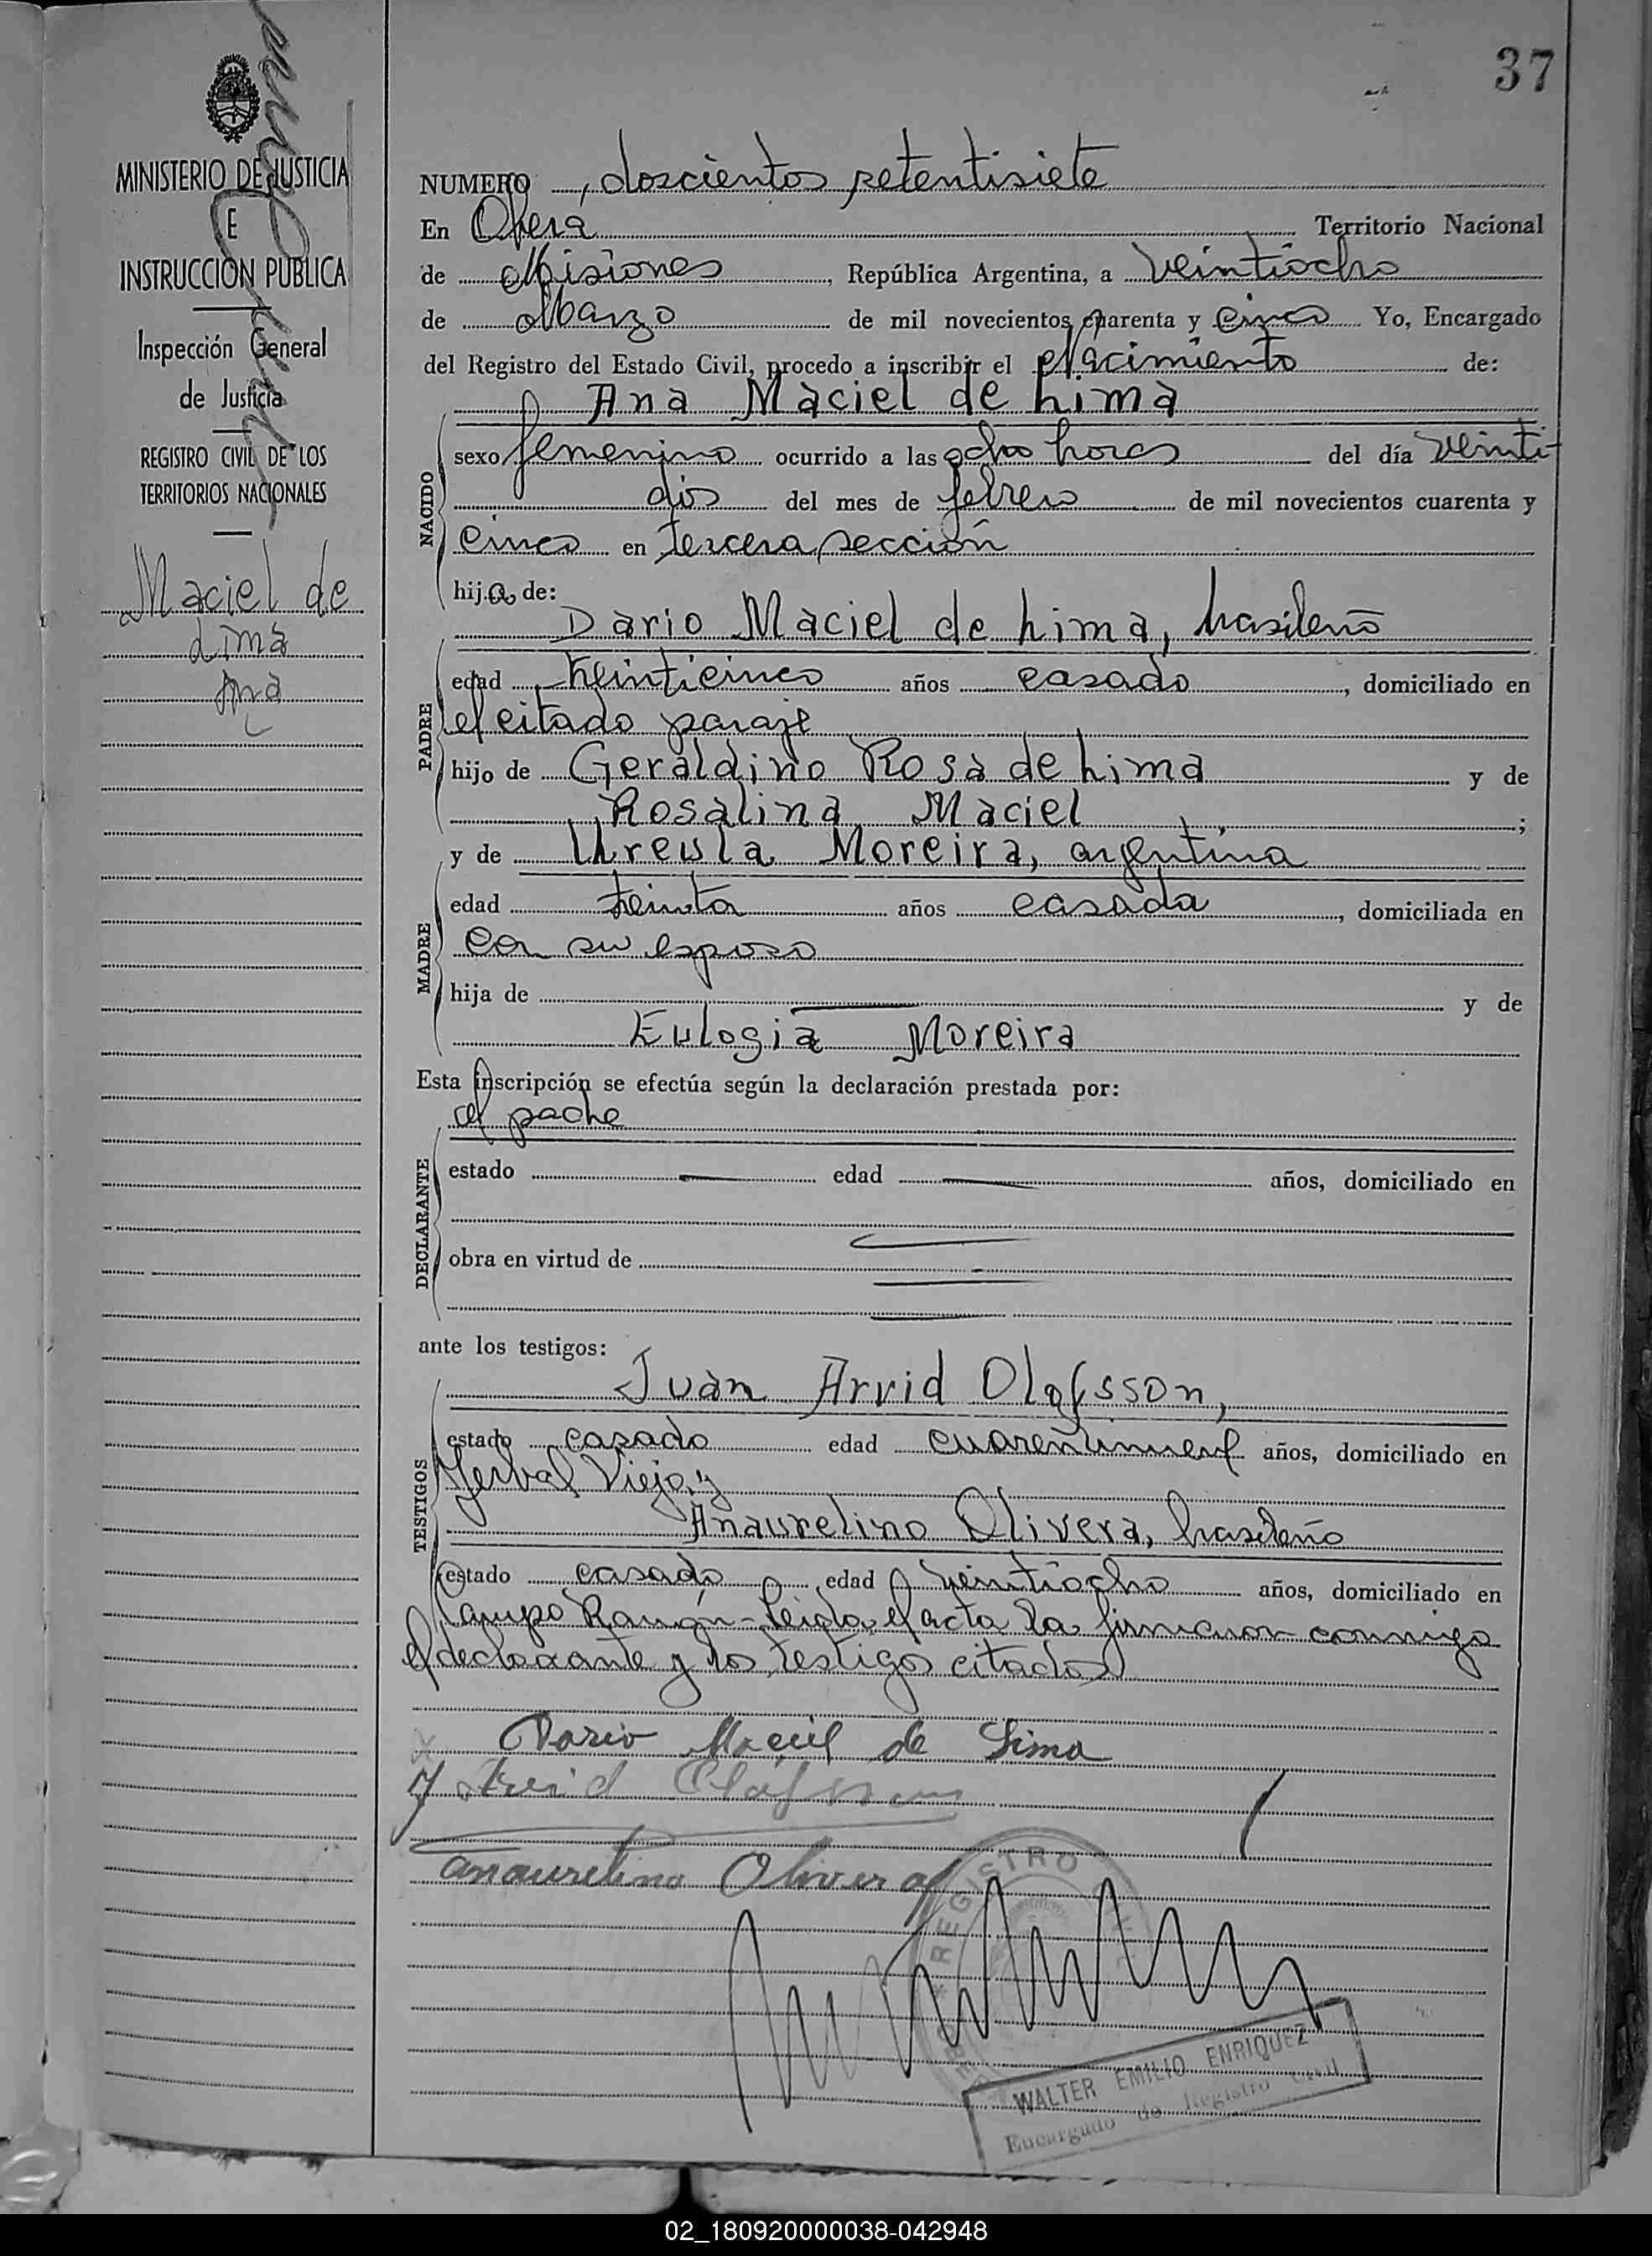 37
MINISTERIO DE JUSTICIA
E
INSTRUCCIÓN PUBLICA
Inspección General
de Justicia
REGISTRO CIVIL DE LOS
TERRITORIOS NACIONALES
Maciel de
Lima
Ana
NUMERO doscientos setentisiete
En Oberá Territorio Nacional
de Misiones, República Argentina, a veintiocho
de Marzo de mil novecientos cuarenta y cinco Yo, Encargado
del Registro del Estado Civil, procedo a inscribir el Nacimiento de:
Ana Maciel de Lima
NACIDO
sexo femenino ocurrido a las ocho horas del día veinti-
dós del mes de febrero de mil novecientos cuarenta y
cinco en tercera sección
hija de:
Dario Maciel de Lima, brasileño
PADRE
edad veinticinco años casado, domiciliado en
el citado paraje
hijo de Geraldino Rosa de Lima y de
Rosalina Maciel;
y de Ureula Moreira, argentina
MADRE
edad treinta años casada, domiciliada en
con su esposo
hija de — y de
Eulogia Moreira
Esta inscripción se efectúa según la declaración prestada por:
el padre
DECLARANTE
estado — edad — años, domiciliado en
obra en virtud de
ante los testigos:
Juan Arvid Olafsson,
TESTIGOS
estado casado edad cuarentinueve años, domiciliado en
Yerbal Viejo, y
Anaurelino Olivera, brasileño
estado casado edad veintiocho años, domiciliado en
Campo Ramón - Leida el acta la firmaron conmigo
el declarante y los testigos citados
Dario Maciel de Lima
J Arvid Olafsson
anaurelino Olivera
REGISTRO
WALTER EMILIO ENRIQUEZ
Encargado de Registro Civil
02_180920000038-042948